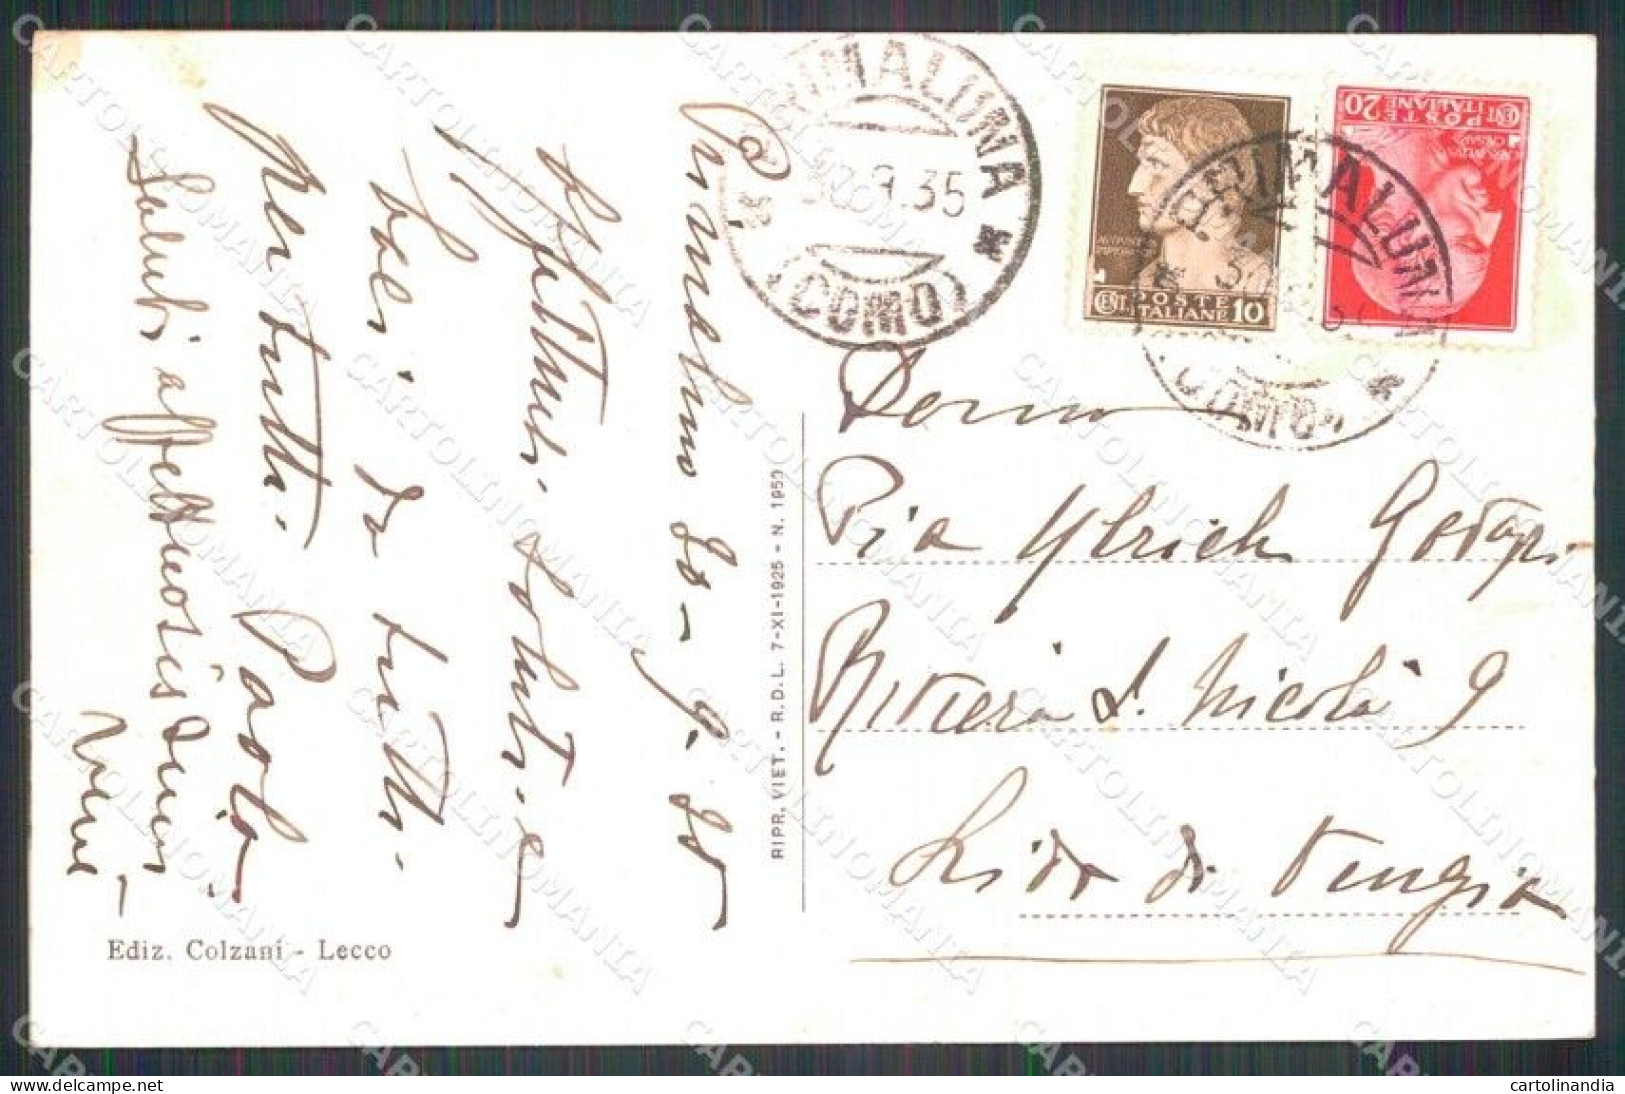 Primaluno 30-9-35
Affettuosi saluti a
Lei da tutti
per tutti. Paola
Saluti affettuosissimi
PRIMALUNA
30.9.35
(COMO)
POSTE ITALIANE
CENT. 10
POSTE ITALIANE
CENT 20
PRIMALUNA
(COMO)
Donna
Pia Ulrich
Riviera S. Nicolò 9
Lido di Venezia
RIPR. VIET. - R.D.L. 7-XI-1925 - N. 1950
Ediz. Colzani - Lecco
CARTOLINOMANIA
cartolinandia